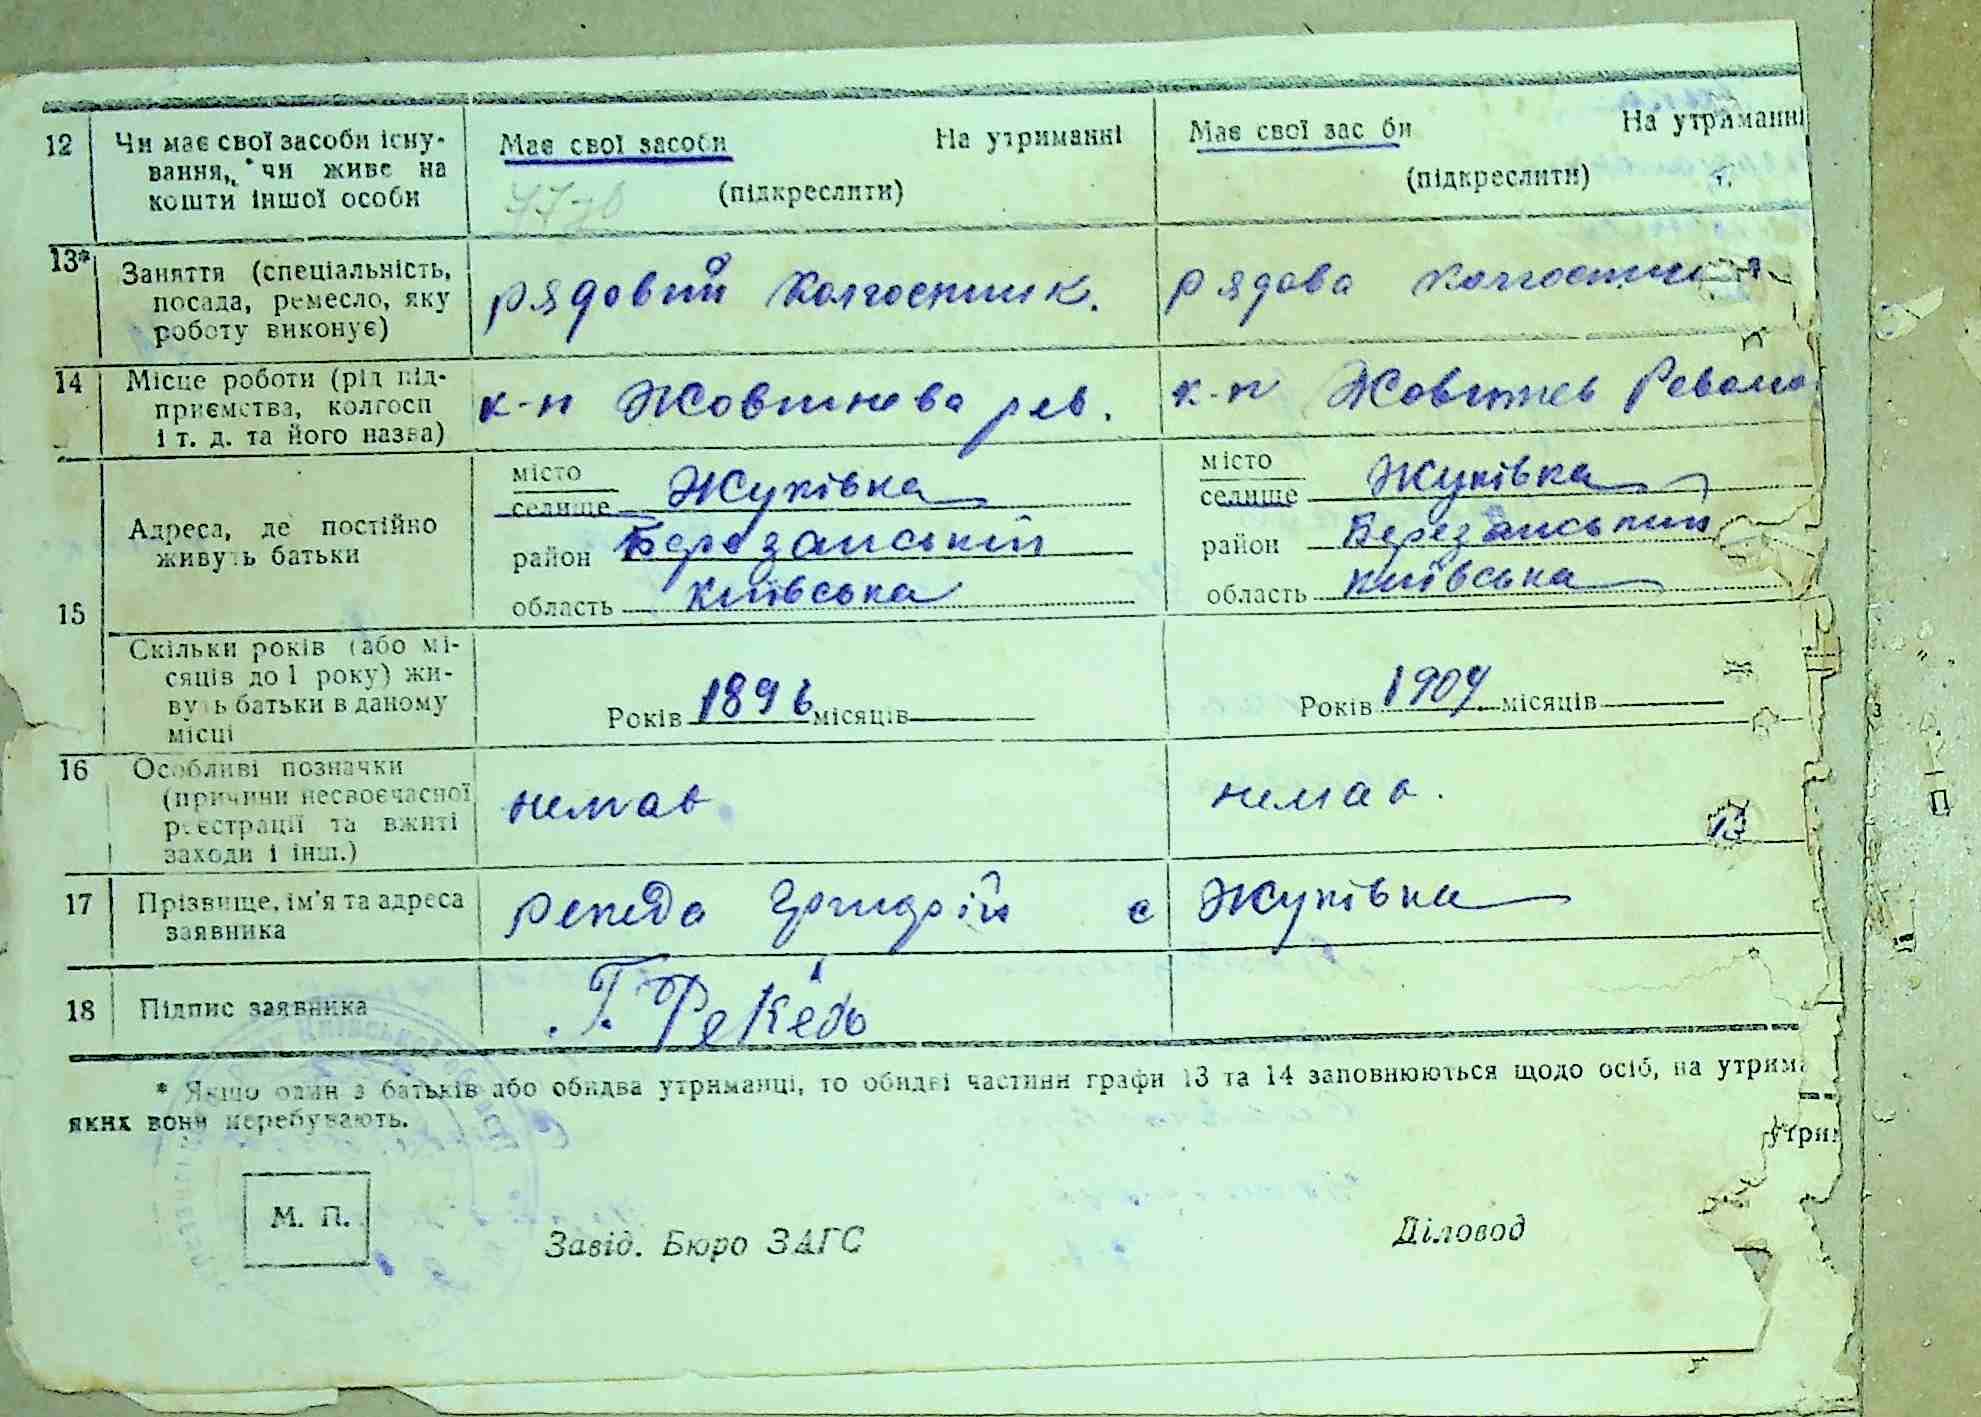 12 Чи має свої засоби існу- Має свої засоби На утриманні Має свої зас би На утриманні
вання, чи живе на (підкреслити) (підкреслити)
кошти іншої особи
13* Заняття (спеціальність, рядовий колгоспник. рядова колгоспниця
посада, ремесло, яку
роботу виконує)
14 Місце роботи (рід під- к-п Жовтнева рев. к-п Жовтнев Револю
приємства, колгосп
і т. д. та його назва)
15 Адреса, де постійно
живуть батьки
місто
селище Жуківка
район Березанський
область київська
місто
селище Жуківка
район Березанський
область київська
Скільки років (або мі-
сяців до 1 року) жи-
вуть батьки в даному
місці
Років 1896 місяців
Років 1904 місяців
16 Особливі позначки немає немає.
(причини несвоєчасної
реєстрації та вжиті
заходи і інш.)
17 Прізвище, ім'я та адреса Рекеда Григорій с Жуківка
заявника
18 Підпис заявника Г. Рекеда
* Якщо один з батьків або обидва утриманці, то обидві частини графи 13 та 14 заповнюються щодо осіб, на утрима
яких вони перебувають.
утрим
М. П.
Завід. Бюро ЗАГС Діловод